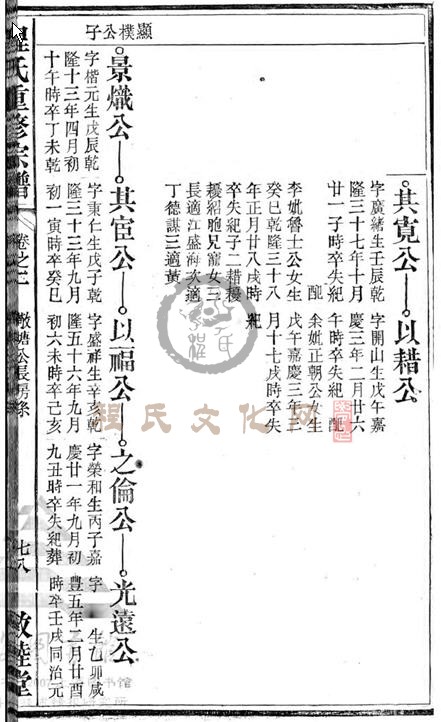 其寬公
字廣緒生壬辰乾
隆三十七年十月
廿一子時卒失紀
配
李妣魯士公女生
癸巳乾隆三十八
年正月廿八戌時
卒失紀子二耤耰
耰紹胞兄寵女三
長適江盛海次適
丁德謀三適黃
以耤公
字開山生戊午嘉
慶三年二月廿六
午時卒失紀 配
余妣正朝公女生
戊午嘉慶三年二
月十七戌時卒失
紀
顯樸公子
景熾公
字楷元生戊辰乾
隆十三年四月初
十午時卒丁未乾
其宦公
字東仁生戊子乾
隆三十三年九月
初一寅時卒癸巳
以福公
字盛祥生辛亥乾
隆五十六年九月
初六未時卒己亥
之倫公
字榮和生丙子嘉
慶廿一年九月初
九丑時卒失紀葬
光遠公
字 生乙卯咸
豐五年二月廿酉
時卒壬戌同治元
程氏重修宗譜
卷之
公長房系
七八
敦睦堂
程氏文化网